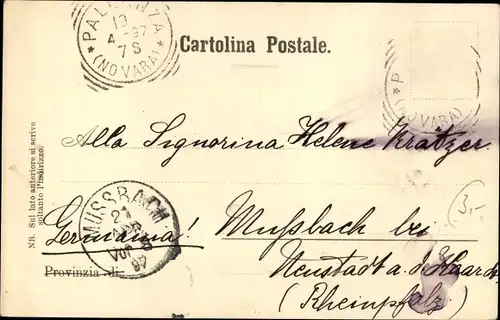 PALLANZA
19
4-97
7 S
* (NOVARA) *
Cartolina Postale.
P
* (NOVARA)
NB. Sul lato anteriore si scrive
soltanto l'indirizzo.
Alla Signorina Helene Krätzer
MUSSBACH
21
97
3,-
Germania! Mußbach bei
Provinzia di
Neustadt a. d. Haardt
(Rheinpfalz)